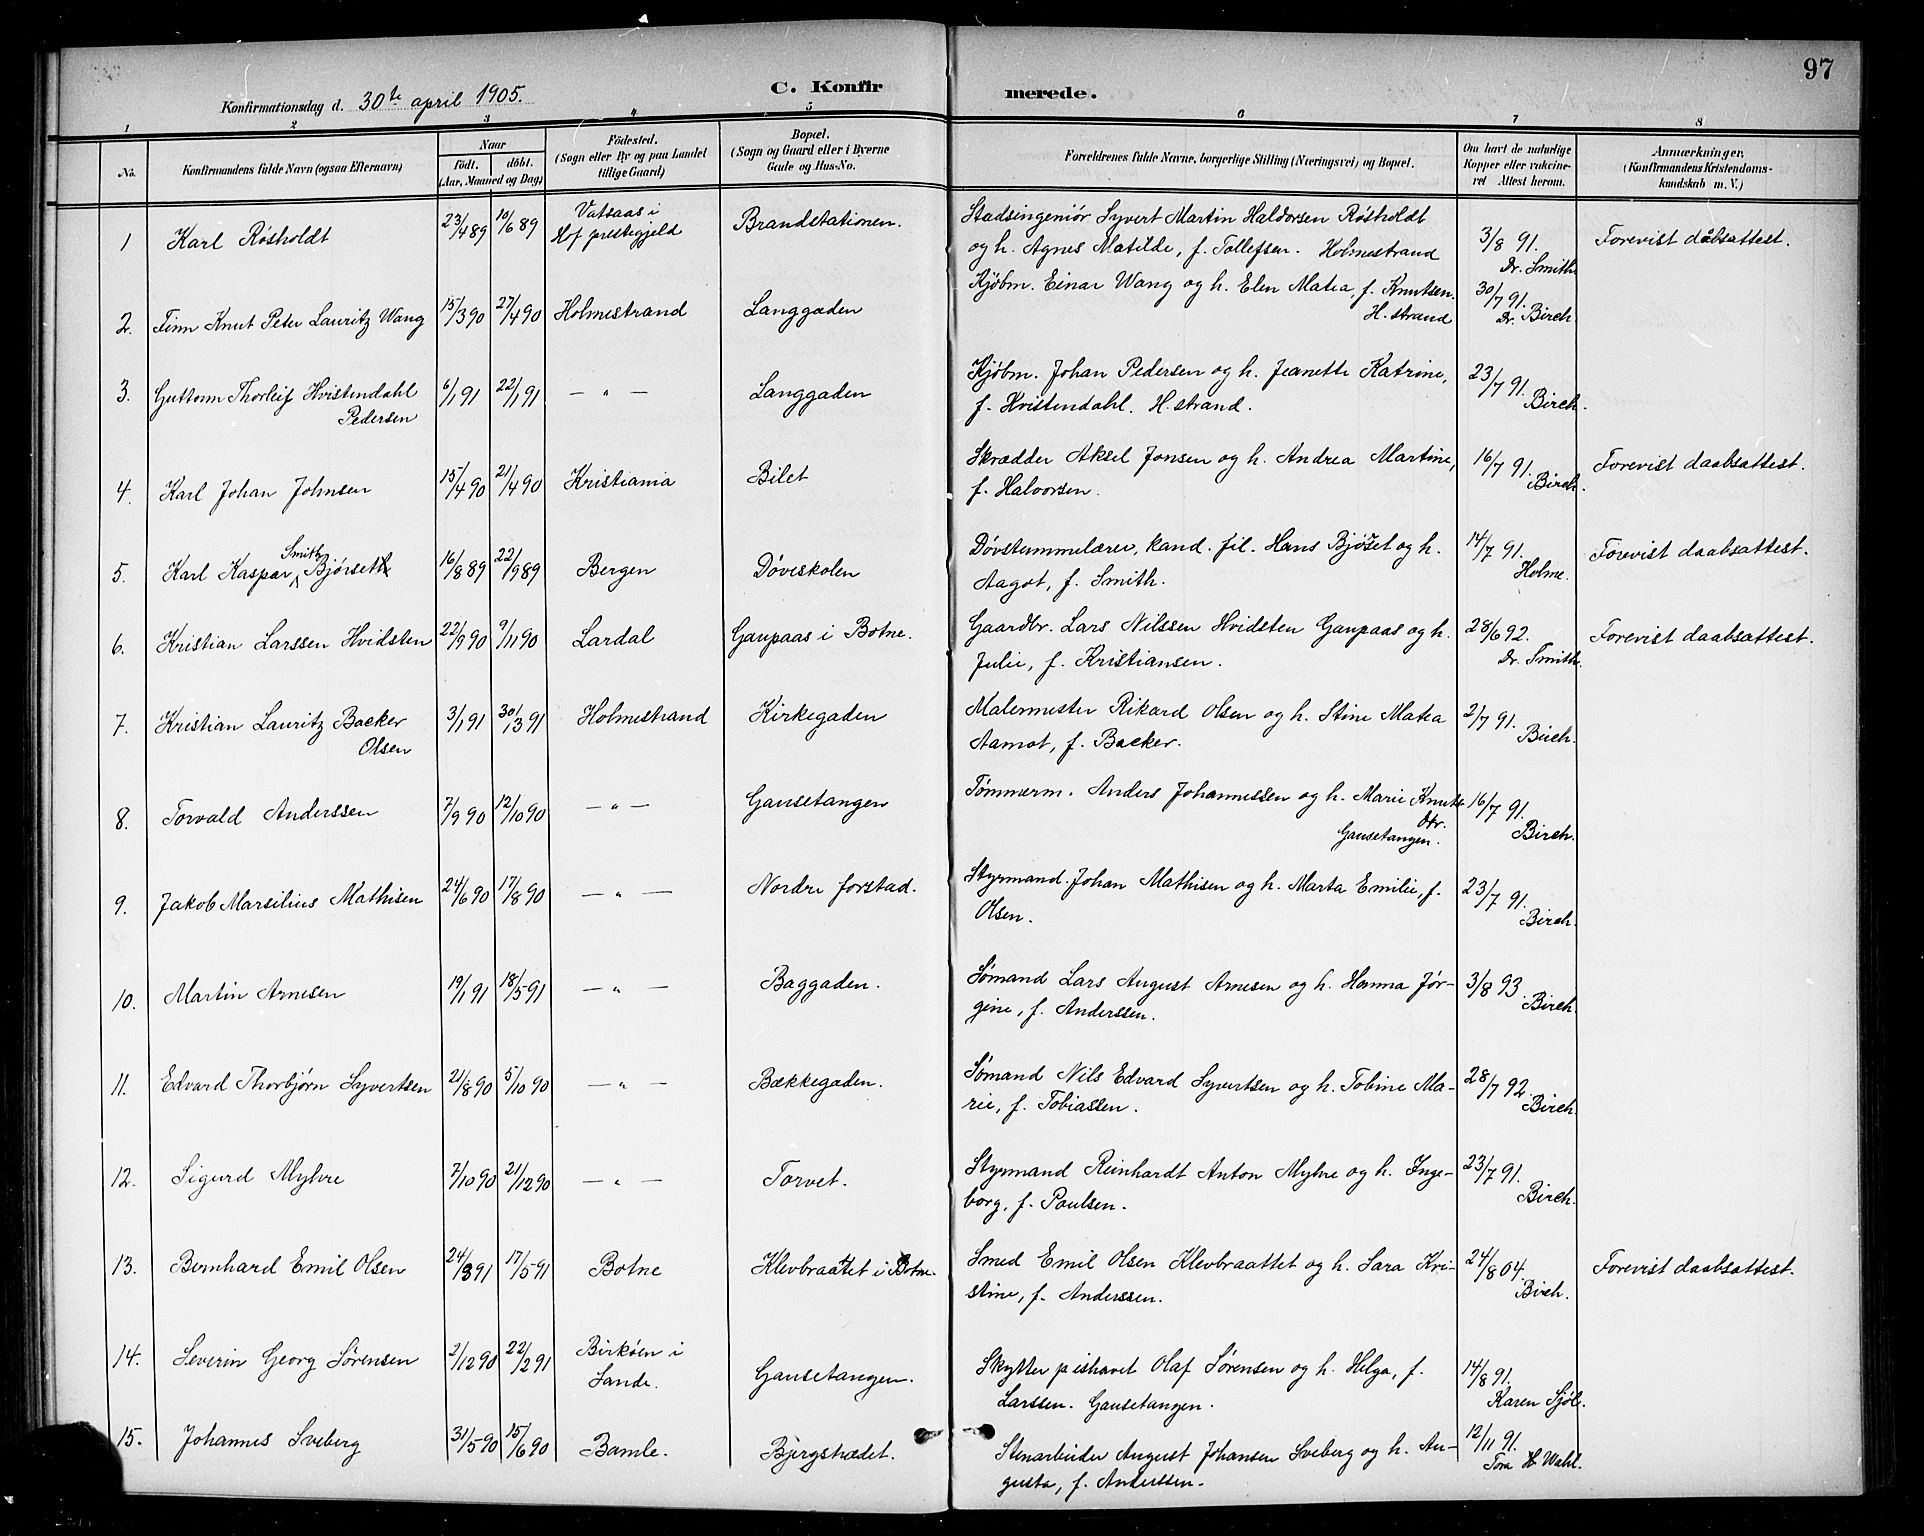 97
Konfirmationsdag d. 30te april 1905.
C. Konfirmerede.
1 2 3 4 5 6 7 8
No. Konfirmandens fulde Navn (ogsaa Efternavn) Naar Födt. döbt. (Aar, Maaned og Dag) Födested. (Sogn eller By og paa Landet tillige Gaard) Bopæl. (Sogn og Gaard eller i Byerne Gade og Hus-No. Forældrenes fulde Navne, borgerlige Stilling (Næringsvei) og Bopæl. Om havt de naturlige Kopper eller vakcineret Attest herom. Anmærkninger. (Konfirmandens Kristendomskundskab m. V.)
1 Karl Røsholdt 23/4 89 10/6 89 Vatsaas i Hof prestegjeld Brandstationen. Stadsingeniör Syvert Martin Haldorsen Røsholdt
og h. Agnes Matilde, f. Tollefsen. Holmestrand 3/8 91. Dr. Smith Forevist dåbsattest.
2. Finn Knut Peter Lauritz Wang 15/3 90 27/4 90 Holmestrand Langgaden Kjøbm. Einar Wang og h. Elen Matea, f. Knutsen.
H.strand 30/7 91. Dr. Birch
3. Guttorm Thorleif Hvistendahl
Pedersen 6/1 91 22/1 91 — „ — Langgaden Kjøbm. Johan Pedersen og h. Jeanette Katrine,
f. Hvistendahl. H.strand. 23/7 91. Birch.
4. Karl Johan Johnsen 15/4 90 21/4 90 Kristiania Bilet Skrædder Aksel Jonsen og h. Andrea Martine,
f. Halvorsen. 16/7 91. Birch. Forevist daabsattest.
5. Karl Kaspar Smith Bjørseth 16/8 89 22/9 89 Bergen Døveskolen Døvstummelærer, kand. fil. Hans Bjøset og h.
Aagot, f. Smith. 14/7 91. Holme. Forevist daabsattest.
6. Kristian Larssen Hvidsten 22/9 90 9/11 90 Lardal Gaupaas i Botne. Gaardbr. Lars Nilssen Hvidsten Gaupaas og h.
Julie, f. Kristiansen. 28/6 92. Dr. Smith. Forevist daabsattest.
7. Kristian Lauritz Backer
Olsen 3/1 91 30/3 91 Holmestrand Kirkegaden Malermester Rikard Olsen og h. Stine Matea
Aamot, f. Backer. 2/7 91. Birch.
8. Torvald Anderssen 7/9 90 12/10 90 — „ — Gausetangen Tømmerm. Anders Johannessen og h. Marie Knuts
dtr.
Gausetangen. 16/7 91. Birch.
9. Jakob Marsilius Mathisen 24/6 90 17/8 90 — „ — Nordre forstad. Styrmand Johan Mathisen og h. Marta Emilie, f.
Olsen. 23/7 91. Birch.
10. Martin Arnesen 19/1 91 18/5 91 — „ — Baggaden. Sømand Lars August Arnesen og h. Hanna Jør-
gine, f. Anderssen. 3/8 93. Birch.
11. Edvard Thorbjørn Syvertsen 21/8 90 5/10 90 — „ — Bækkegaden. Sømand Nils Edvard Syvertsen og h. Tobine Ma-
rie, f. Tobiassen. 28/7 92. Birch.
12. Sigurd Myhre 7/10 90 21/12 90 — „ — Torvet. Styrmand Reinhardt Anton Myhre og h. Inge-
borg, f. Paulsen. 23/7 91. Birch.
13. Bernhard Emil Olsen 24/3 91 17/5 91 Botne Klevbraattet i Botne. Smed Emil Olsen Klevbraattet og h. Sara Kri-
stine, f. Anderssen. 24/8 04. Birch. Forevist daabsattest.
14. Severin Georg Sørensen 2/12 90 22/2 91 Birköen i
Sande. Gausetangen. Skytter p ishavet Olaf Sørensen og h. Helga, f.
Larssen. Gausetangen. 14/8 91. Karen Sjöl.
15. Johannes Sveberg 31/5 90 15/6 90 Bamle. Bjergstrædet. Stenarbeider August Johansen Sveberg og h. Au-
gusta, f. Anderssen. 12/11 91. Tora H Wahl.